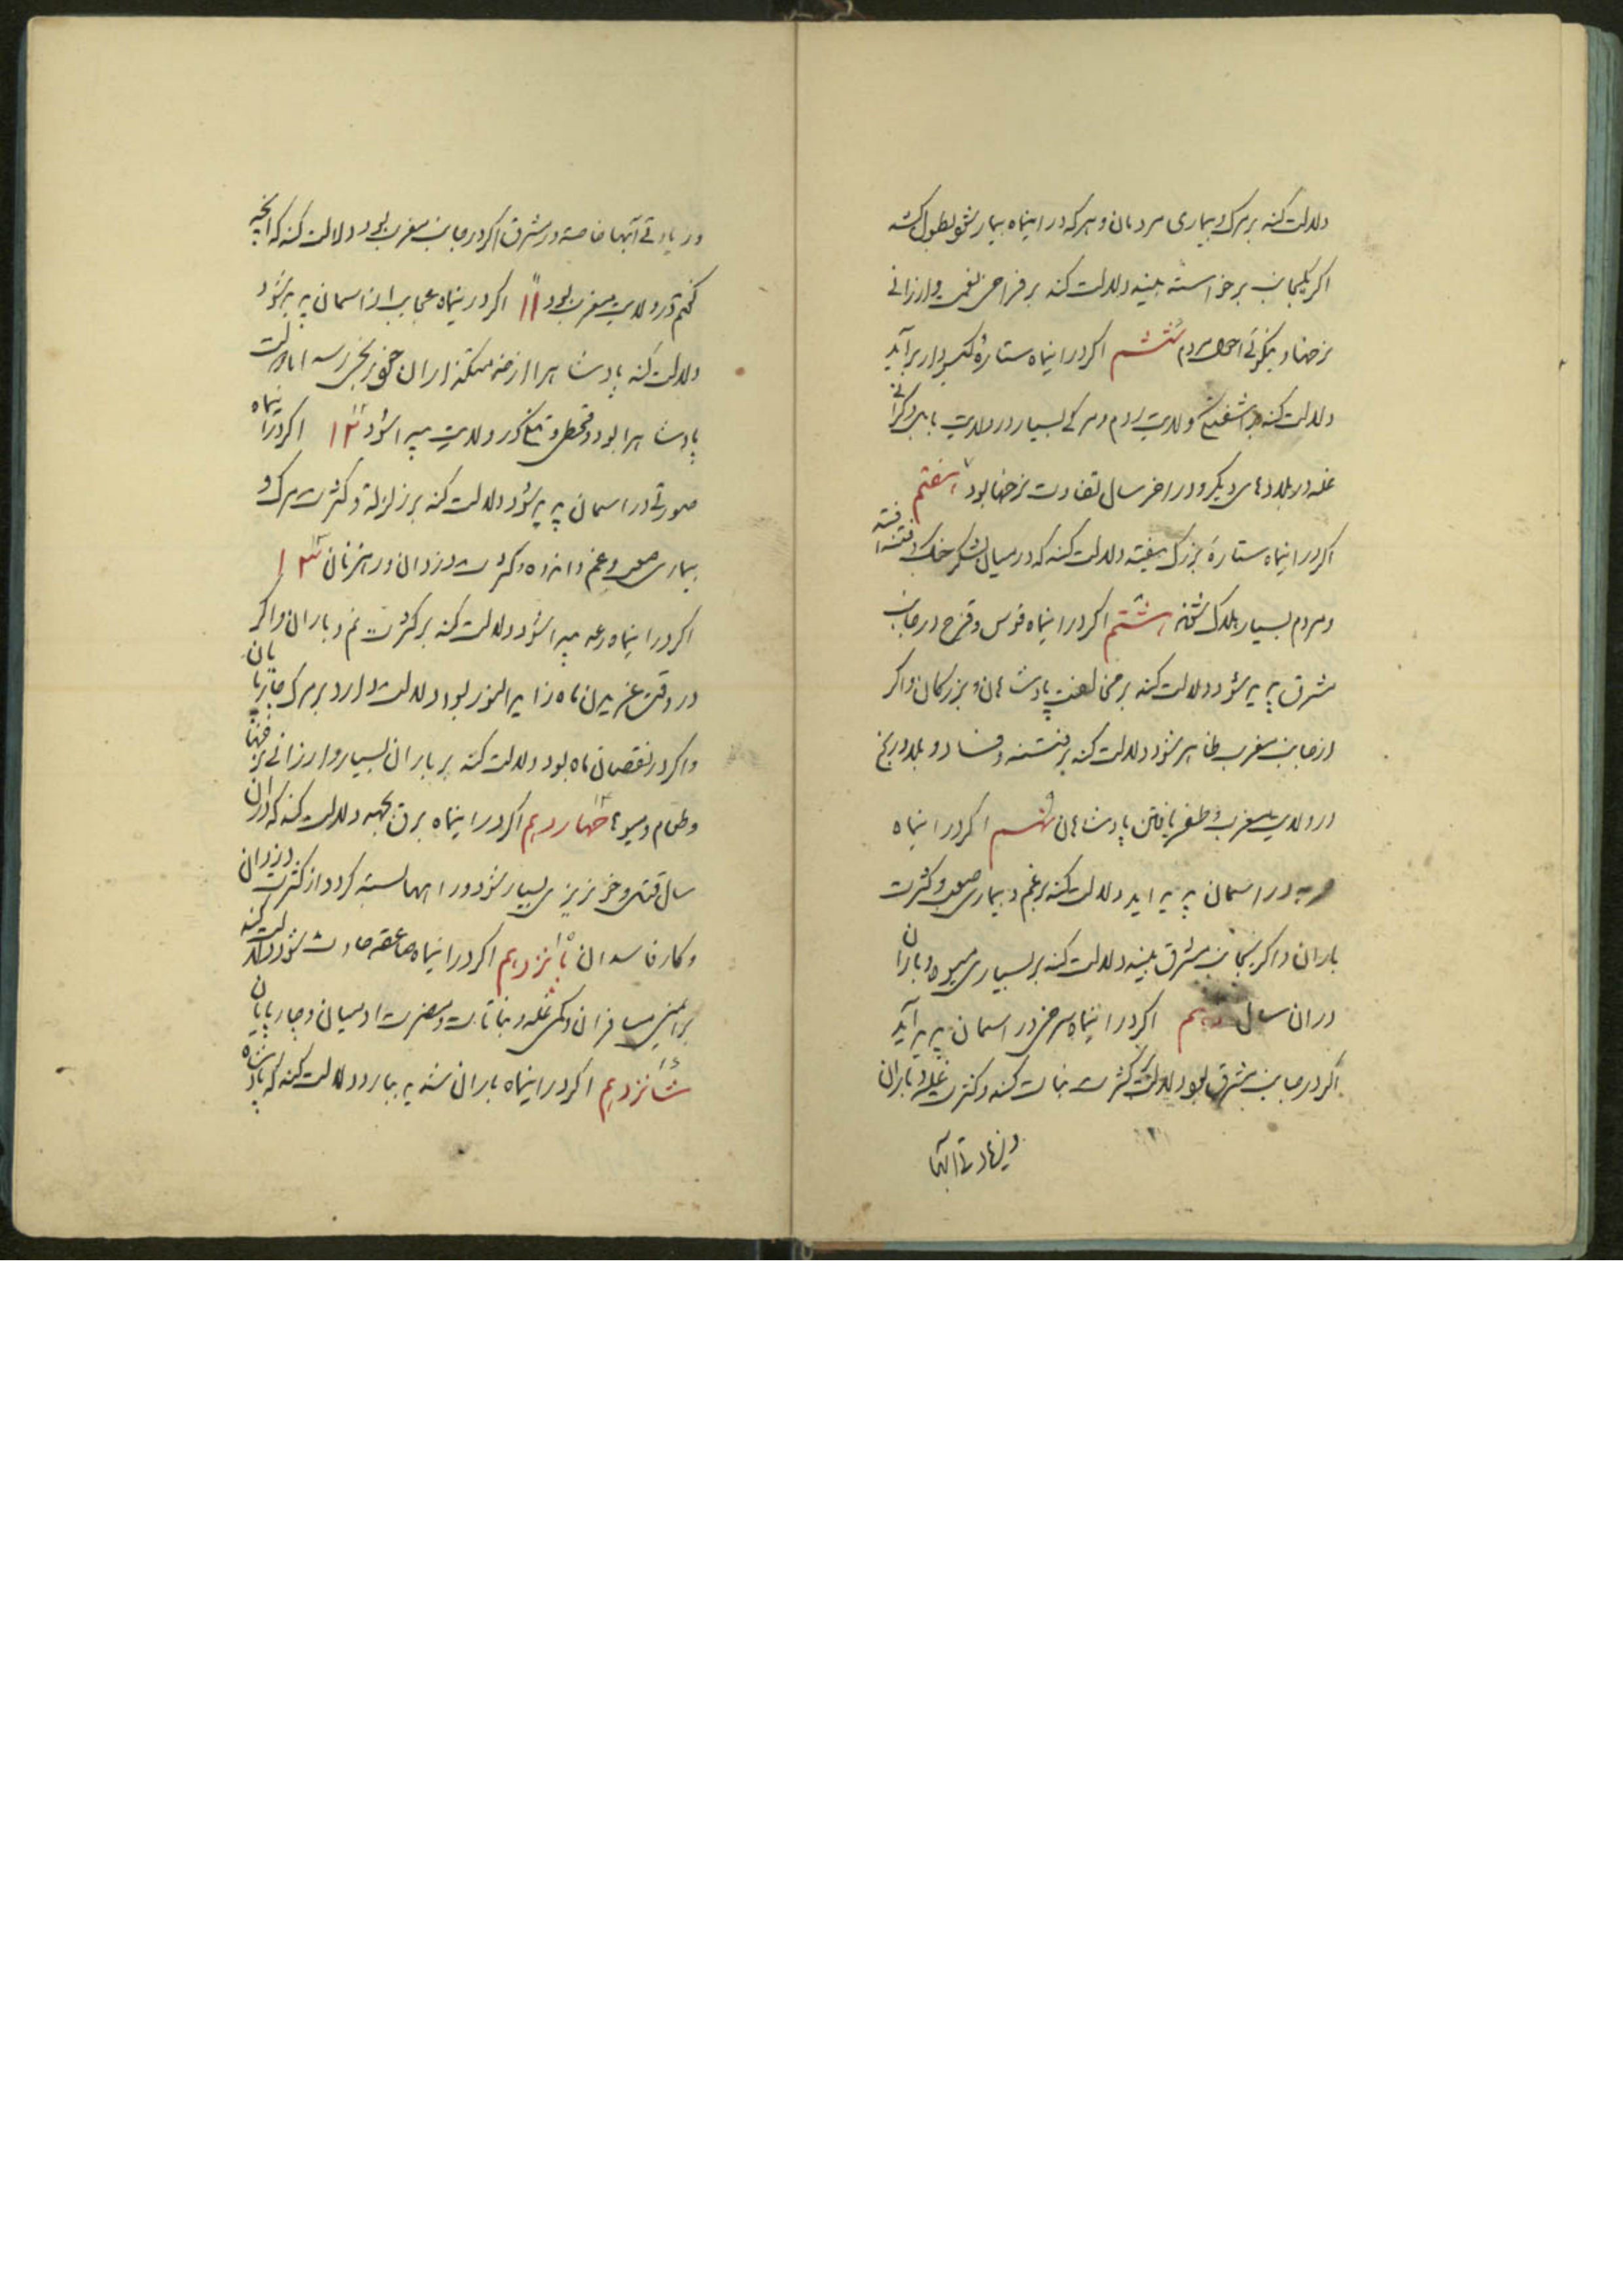 دلالت کند بر مرک و بیماری مردمان و هر که در اینماه بیمار شود بطول کشد
اکر یکجانب برخواسته بیند دلالت کند بر فراخی نعمت و ارزانی
نرخها و نیکوئی احوال مردم ششم اکر در اینماه ستارهٔ کیسودار برآید
دلالت کند بر اشفتکی ولایت روم و مرکی بسیار در ولایت بابل و کرانی
غله در بلادهای دیکر و در اخر سال تفاوت نرخها بود هفتم
اکر در اینماه ستارهٔ بزرک بیفتد دلالت کند که در میان لشکر جنک و فتنه افتد
و مردم بسیار هلاک شوند هشتم اکر در اینماه قوس و قزح در جانب
مشرق پدید شود دلالت کند بر مخالفت پادشاهان و بزرکان و اکر
از جانب مغرب ظاهر شود دلالت کند بر فتنه و فساد و بلا و رنج
در ولایت مغرب و ظفر یافتن پادشاهان نهم اکر در اینماه
در اسمان پدید اید دلالت کند بر غم و بیماری صعب و کثرت
باران و اکر بجانب مشرق بیند دلالت کند بر بسیاری میوه و باران
در ان سال دهم اکر در اینماه سرخی در اسمان پدید آید
اکر در جانب مشرق بود دلالت کثرت نبات کند و کثرت غله و باران
و زیادتی آبها
و زیادتی آبها خاصه در مشرق اکر در جانب مغرب بود دلالت کند که انچه
کفتم در ولایت مغرب بود ۱۱ اکر در ینماه عجایب از اسمان پدید شود
دلالت کند پادشاه را از خدمتکذاران خود رنجی رسد اما برکت
پادشاه را بود و قحطی و تنکی در ولایت پیدا شود ۱۲ اکر در اینماه
صورتی در اسمان پدید شود دلالت کند بر زلزله و کثرت مرک و
بیماری صعب و غم و اندوه و کثرت دزدان و رهزنان ۱۳
اکر در اینماه رعد پیدا شود دلالت کند بر کثرت نم و باران و اکر
در وقت غریدن ماه زاید النور بود دلالت دارد بر مرک چارپایان
و اکر در نقصان ماه بود دلالت کند بر باران بسیار و ارزانی نرخها
و طعام و میوها چهاردهم اکر در اینماه برق بجهد دلالت کند که در ان
سال قتل و خونریزی بسیار شود و راهها بسته کردد از کثرت دزدان
و کار فاسدان پانزدهم اکر در اینماه صاعقه حادث شود دلالت کند
بر ایمنی مسافران و کمی غله و نباتات و مضرت ادمیان و چارپایان
شانزدهم اکر در اینماه باران شدید ببارد دلالت کند که پادشاه